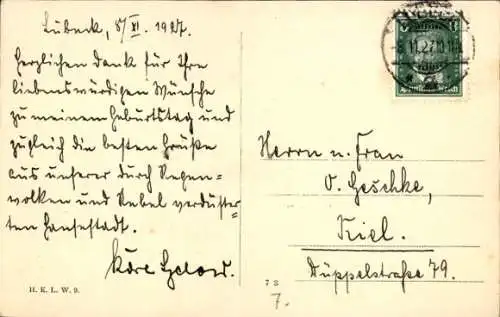 Lübeck, 8/XI. 1927.
Herzlichen Dank für Ihre
liebenswürdigen Wünsche
zu meinem Geburtstag und
zugleich die besten Grüße
aus unserer durch Regen-
wolken und Nebel verdüster-
ten Hansestadt.
H. K. L. W. 9.
-8.11.27.10
Deutsches Reich
Herrn u. Frau
O. Geschke,
Kiel.
Düppelstraße 79.
7 2
7.